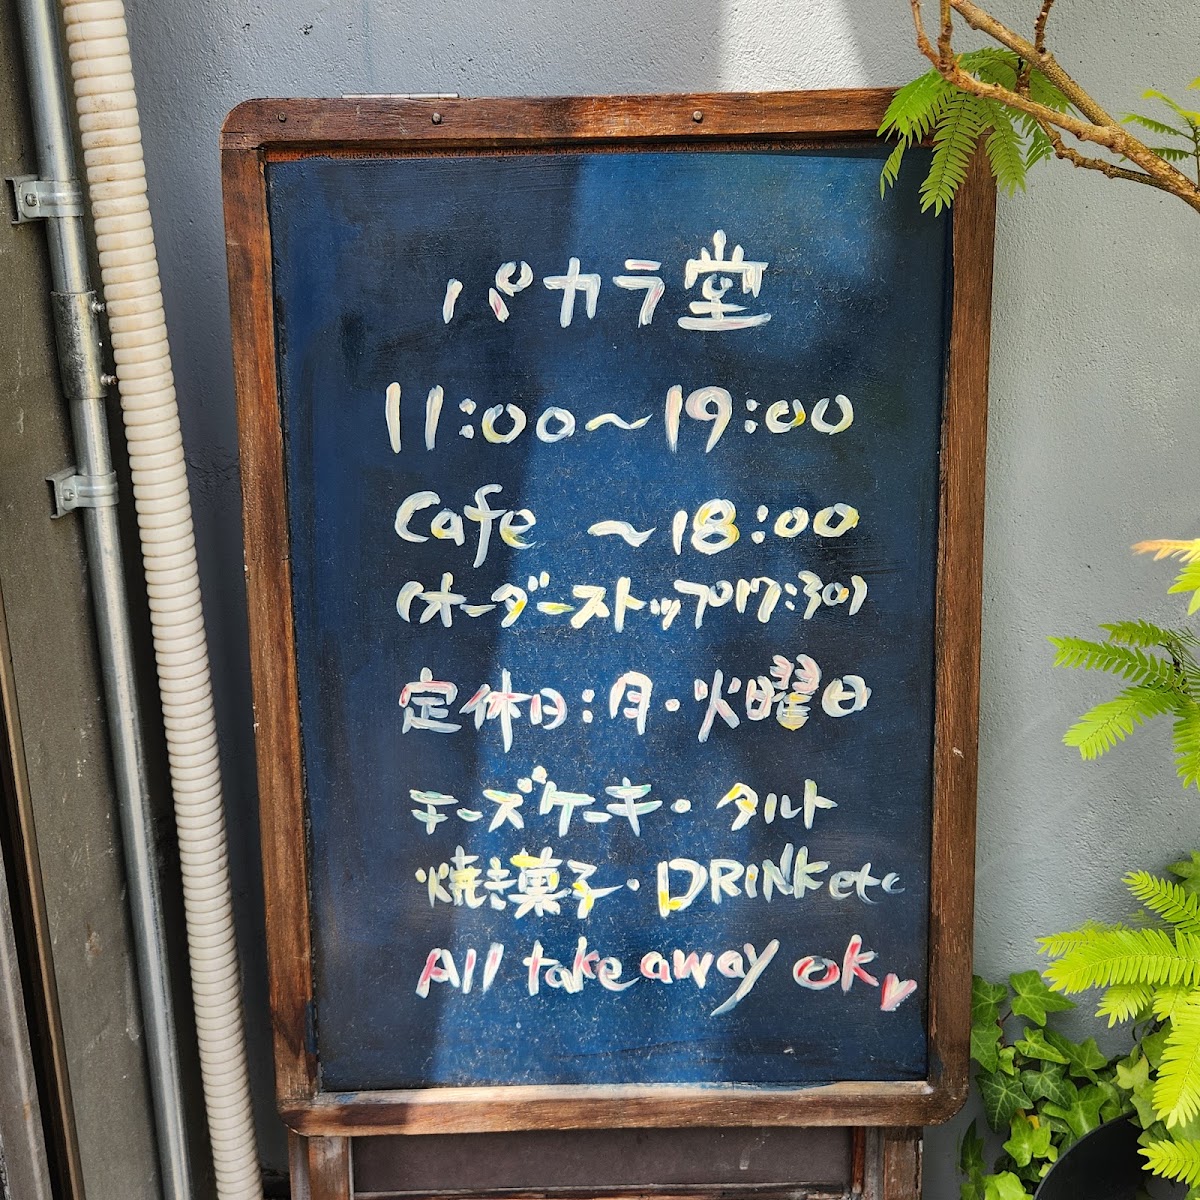 パカラ堂
11:00～19:00
Cafe ～18:00
(オーダーストップ17:30)
定休日:月・火曜日
チーズケーキ・タルト
焼き菓子・DRINK etc
All take away ok